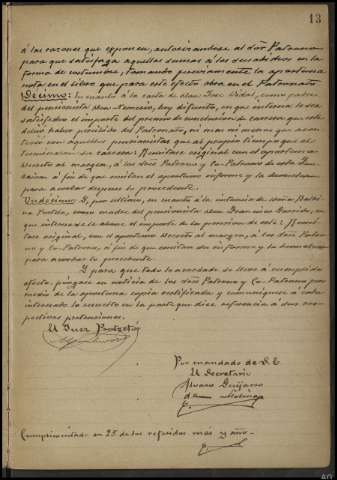 13
á las razones que exponen, autorizándose al Sor Patrono
para que satisfaga aquellas sumas á los acreedores en la
forma de costumbre, tomando previamente la oportuna
nota en el libro que para este efecto obra en el Patronato
Décimo: En cuanto á la carta de don José Vidal, como padre
del pensionista don Nemesio, hoy difunto, en que interesa le sea
satisfecho el importe del premio de conclusion de carrera que este
debió haber percibido del Patronato, ni mas ni menos que acon-
tece con aquellos pensionistas que al propio tiempo que el
terminaron su carrera: Remítase original con el oportuno
decreto al margen, á los Sres Patrono y Co-Patrono de esta Fun-
dacion á fin de que emitan el oportuno informe y lo devuelvan
para acordar despues lo procedente.
Undécimo: Y, por último, en cuanto á la instancia de doña
como madre del pensionista don Juan
que interesa se le abone el importe de la pension de este: Remí-
tase original, con el oportuno decreto al margen, á los Sres Patro-
no y Co-Patrono, á fin de que emitan su informe y lo devuelvan
para acordar lo procedente.
Y para que todo lo acordado se lleve á cumplido
efecto, póngase en noticia de los Sres Patrono y Co-Patrono por
medio de la oportuna copia certificada y comuníquese á cada
interesado lo resuelto en la parte que dice referencia á sus res-
pectivas pretensiones.
El Juez Protector
Por mandado de S. E.
El Secretario
Alvaro Guijarro
Cumplimentado en 25 de los referidos mes y año.